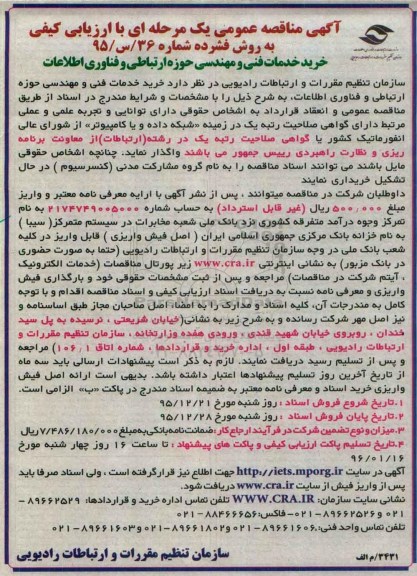 آگهی مناقصه عمومی یک مرحله ای با ارزیابی کیفی
به روش فشرده شماره ۳۶/س/۹۵
خرید خدمات فنی و مهندسی حوزه ارتباطی و فناوری اطلاعات
سازمان تنظیم مقررات و ارتباطات رادیویی در نظر دارد خرید خدمات فنی و مهندسی حوزه
ارتباطی و فناوری اطلاعات، به شرح ذیل را با مشخصات و شرایط مندرج در اسناد از طریق
مناقصه عمومی و انعقاد قرارداد به اشخاص حقوقی دارای توانایی و تجربه علمی و عملی
مرتبط دارای گواهی صلاحیت رتبه یک در زمینه «شبکه داده و یا کامپیوتر» از شورای عالی
انفورماتیک کشور یا گواهی صلاحیت رتبه یک در رشته(ارتباطات)از معاونت برنامه
ریزی و نظارت راهبردی رییس جمهور می باشند واگذار نماید. چنانچه اشخاص حقوقی
مایل باشند می توانند اسناد مناقصه را به نام گروه مشارکت مدنی (کنسرسیوم) در حال
تشکیل خریداری نمایند
داوطلبان شرکت در مناقصه میتوانند ، پس از نشر آگهی با ارایه معرفی نامه معتبر و واریز
مبلغ ۵۰۰٫۰۰۰ ریال (غیر قابل استرداد) به حساب شماره ۲۱۷۴۷۴۹۰۰۵۰۰۰ به نام
تمرکز وجوه درآمد متفرقه کشوری نزد بانک ملی شعبه مخابرات در سیستم متمرکز( سیبا )
به نام خزانه بانک مرکزی جمهوری اسلامی ایران ( اصل فیش واریزی ) قابل واریز در کلیه
شعب بانک ملی در وجه سازمان تنظیم مقررات و ارتباطات رادیویی (حتما به صورت حضوری
در بانک مزبور) به نشانی اینترنتی www.cra.ir زیر پورتال مناقصات (خدمات الکترونیک
، آیتم شرکت در مناقصات) مراجعه و پس از ثبت مشخصات حقوقی خود و بارگذاری فیش
واریزی و معرفی نامه نسبت به دریافت اسناد ارزیابی کیفی و اسناد مناقصه اقدام و با توجه
کامل به مندرجات آن، کلیه اسناد و مدارک را به امضاء اصل صاحبان مجاز طبق اساسنامه و
نیز اصل مهر شرکت رسانده و به شرح زیر به نشانی(خیابان شریعتی ، نرسیده به پل سید
خندان ، روبروی خیابان شهید قندی ، ورودی هفده وزارتخانه ، سازمان تنظیم مقررات و
ارتباطات رادیویی ، طبقه اول ، اداره خرید و قراردادها ، شماره اتاق ۱۰۶ ) مراجعه
و پس از تسلیم رسید دریافت نمایند. لازم به ذکر است پیشنهادات ارسالی باید سه ماه
از تاریخ آخرین روز تسلیم پیشنهادها اعتبار داشته باشد. بدیهی است ارائه اصل فیش
واریزی خرید اسناد و معرفی نامه معتبر به ضمیمه اسناد مندرج در پاکت «ب» الزامی است.
۱.تاریخ شروع فروش اسناد : روز شنبه مورخ ۹۵/۱۲/۲۱
۲.تاریخ پایان فروش اسناد : روز شنبه مورخ ۹۵/۱۲/۲۸
۳.میزان و نوع تضمین شرکت در فرآیند ارجاع کار: ضمانت نامه بانکی به مبلغ ۷/۴۸۶/۱۸۰/۰۰۰ریال
۴.تاریخ تسلیم پاکت ارزیابی کیفی و پاکت های پیشنهاد : تا ساعت ۱۶ روز چهار شنبه مورخ
۹۶/۰۱/۱۶
آگهی در سایت http://iets.mporg.ir جهت اطلاع نیز قرار گرفته است ، ولی اسناد صرفا باید
پس از واریز فیش از سایت www.cra.ir دریافت شود.
نشانی سایت سازمان: WWW.CRA.IR تلفن تماس اداره خرید و قراردادها: ۸۹۶۶۲۵۲۹-
۰۲۱ و ۸۹۶۶۲۵۲۶-۰۲۱-فاکس: ۸۸۴۶۶۶۵۶-۰۲۱
تلفن تماس واحد فنی: ۸۹۶۶۱۶۰۶-۰۲۱ و ۸۹۶۶۱۸۰۲-۰۲۱ و ۸۹۶۶۱۶۰۳-۰۲۱
سازمان تنظیم مقررات و ارتباطات رادیویی
۳۴۳۱/م الف